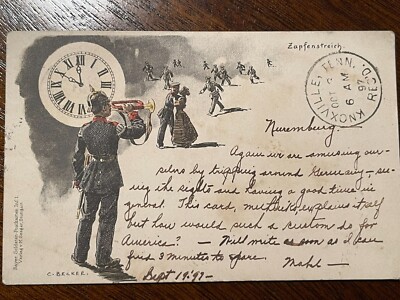 Zapfenstreich.
KNOXVILLE, TENN.
OCT 3
6 AM
97
REC'D.
Nuremburg.
Again we are amusing our-
selves by tripping around Germany — see-
ing the sights and having a good time in
general. This card, methinks, explains itself
but how would such a custom do for
America? — Will write as soon as I can
find 3 minutes to spare.
Mahl —
Sept 19. '97 —
C. BECKER.